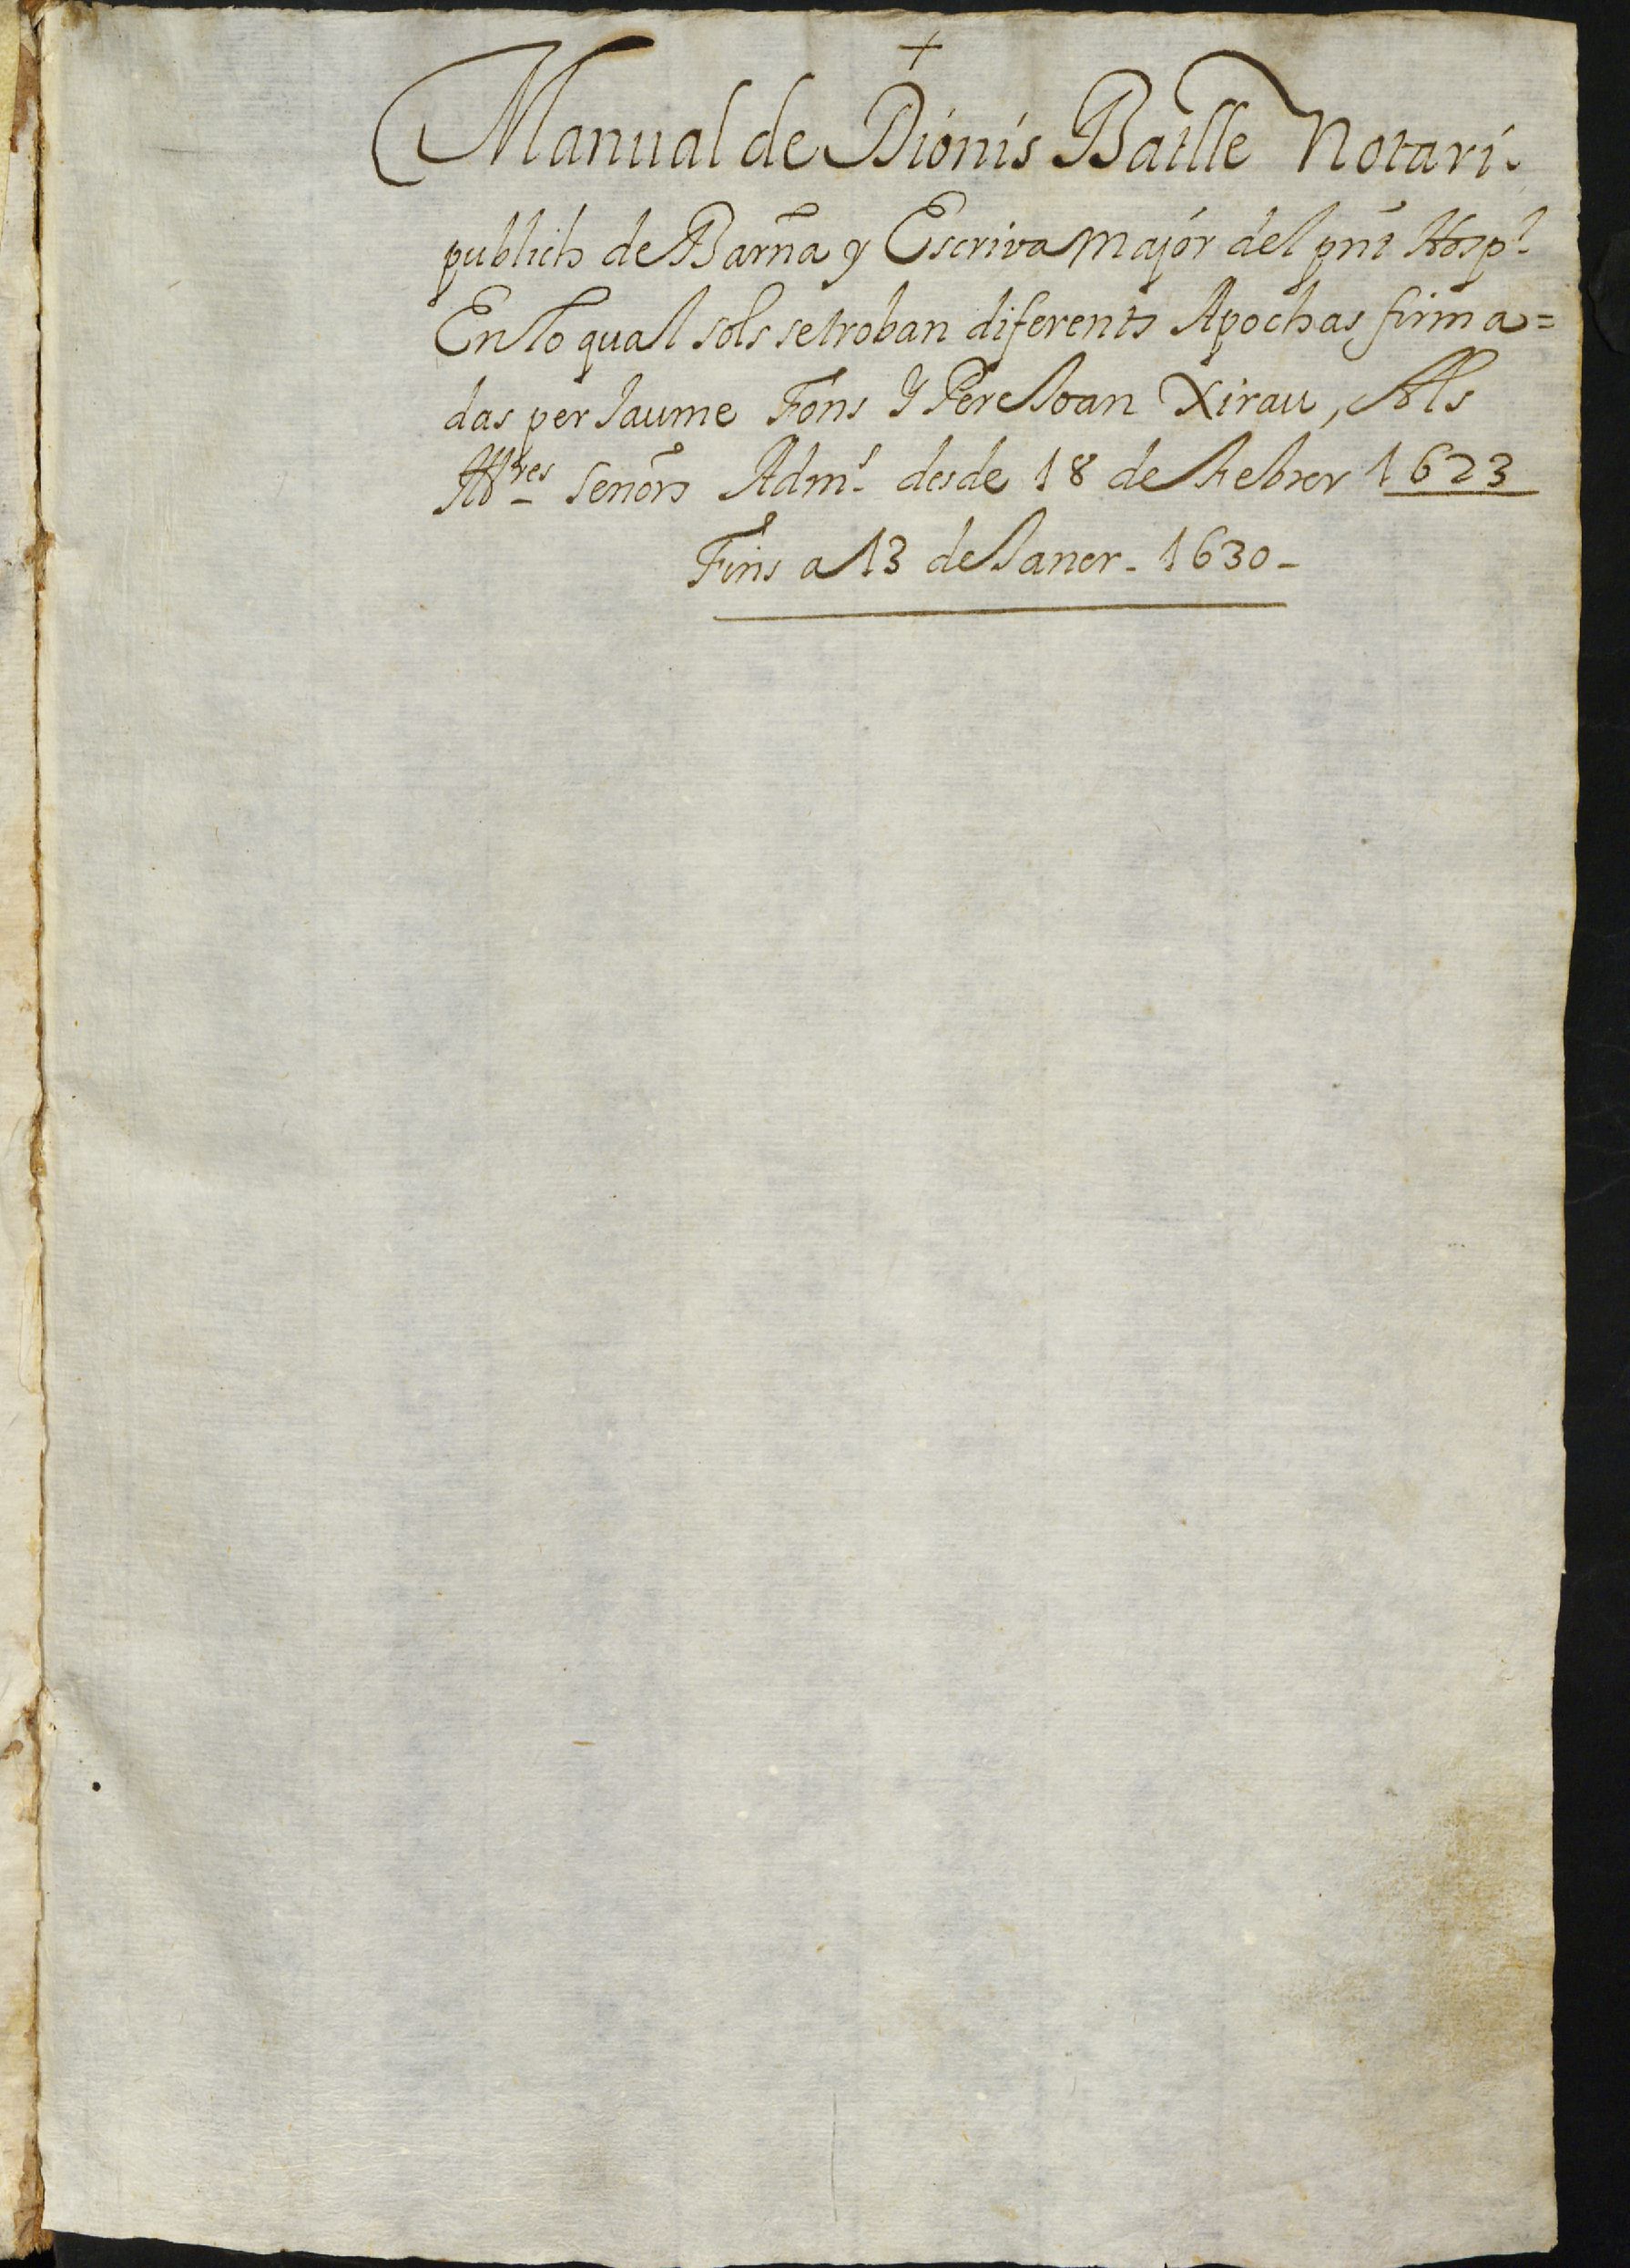 +
Manual de Dionis Batlle Notari.
publich de Barña y Escriva major del pñt Hospl
En lo qual sols se troban diferents Apochas firma=
das per Jaume Fons Y Pere Joan Xirau, Als
señors Adms desde 18 de Febrer 1623
Fins a 13 de Janer - 1630 -